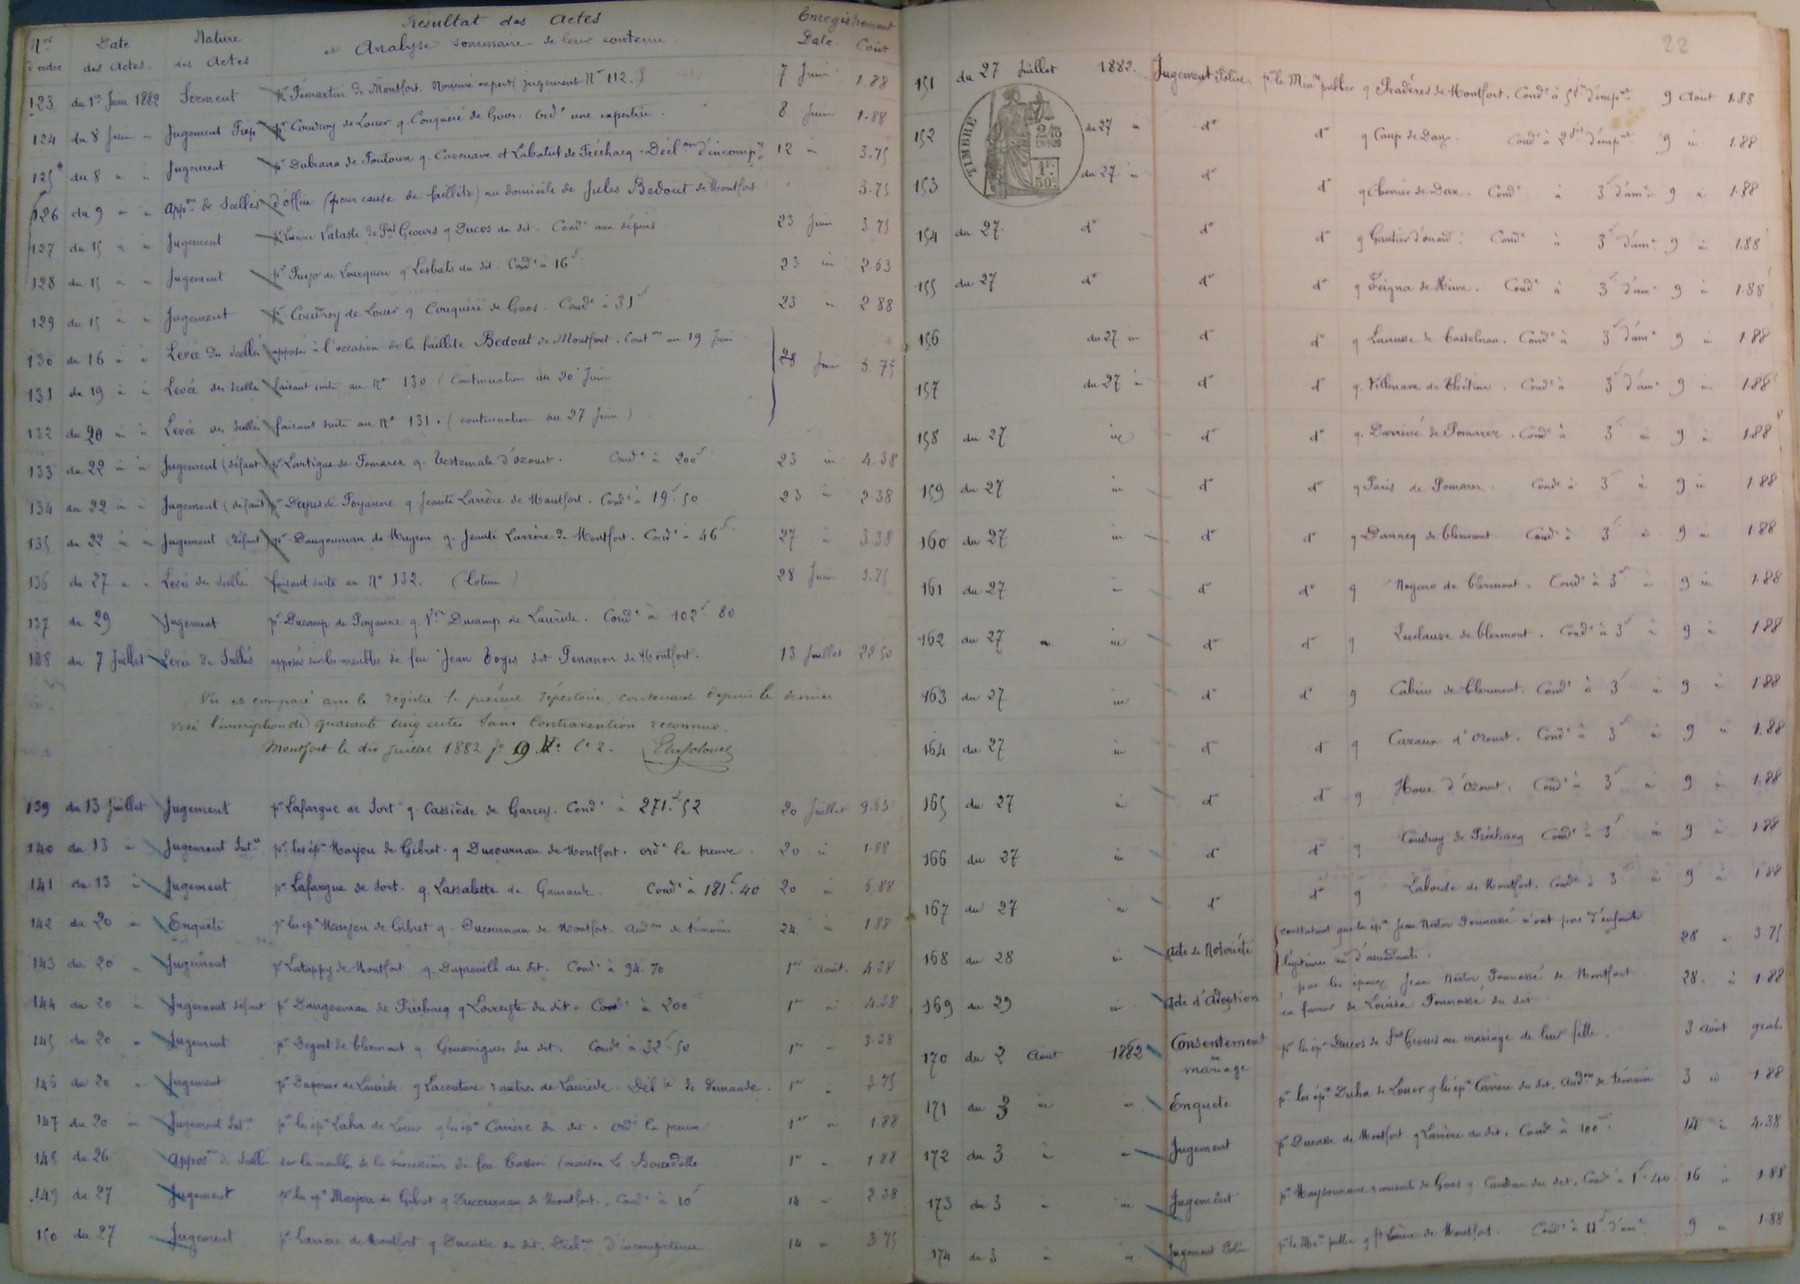 Résultat des Actes
et Analyse sommaire de leur contenu
Nos d'ordre Date des Actes Nature des Actes Enregistrement Date Coût
123 du 1er Juin 1882 Serment Nommé expert (jugement N° 112.) 7 Juin 1.88
124 du 8 Juin Jugement pr Coudroy de Louer q. Conqueré de Goos. Ordre une expertise. 8 Juin 1.88
125 du 8 Jugement pr Dubrana de q. Cazenave et Labatut de Préchacq. Décl d'incomp 12 3.75
126 du 9 Appon de Scellés d'office (pour cause de faillite) au domicile de Jules Bedout de Montfort 3.75
127 du 15 Jugement Lataste de St Geours q Ducos du dit. Condé aux dépens 23 Juin 3.75
128 du 15 Jugement pr Puyo de Lourquen q Lesbats du dit. Condé à 16f 23 2.63
129 du 15 Jugement pr Coudroy de Louer q Conqueré de Goos. Condé à 31f 23 2.88
130 du 16 Levée des scellés apposés à l'occasion de la faillite Bedout de Montfort. Conton au 19 Juin 28 Juin 3.75
131 du 19 Levée des scellés faisant suite au N° 130 (continuation au 20 Juin
132 du 20 Levée des scellés faisant suite au N° 131. (continuation au 27 Juin)
133 du 22 Jugement (défaut) pr Lartigue de Pomarez q. Testemale d'ozourt. Condé à 200f 23 4.38
134 du 22 Jugement (défaut) pr Dupis de Poyanne q Jeanté Larrère de Montfort. Condé à 19f.50 23 2.38
135 du 22 Jugement (défaut) pr Daugouman de Mugron q. Jeanté Larrère de Montfort. Condé à 46f 27 3.38
136 du 27 Levée des scellés faisant suite au N° 132. 28 Juin 3.75
137 du 29 Jugement pr Ducamp de Poyanne q. Vve Ducamp de Laurède. Condé à 102f 80
138 du 7 Juillet Levée de Scellés apposés sur les meubles de feu Jean dit de Montfort. 13 Juillet 22.50
Vu et comparé avec le registre le présent répertoire, contenant depuis le dernier
visa l'inscription de quarante cinq actes sans contravention reconnue
Montfort le dix juillet 1882 fo 9 Vo Co 2.
139 du 13 Juillet Jugement pr Lafargue de Sort q Cassiède de Garrey. Condé à 271f.52 20 Juillet 9.63
140 du 13 Jugement Intre pr les épx Marjou de Gibret q Ducournau de Montfort. ordé la preuve 20 1.88
141 du 13 Jugement pr Lafargue de Sort. q. Lassalette de Gamarde. Condé à 181f.40 20 6.88
142 du 20 Enquête pr les épx Marjou de Gibret q. Ducournau de Montfort. Audon de témoins 24 1.88
143 du 20 Jugement pr Latappy de Montfort q. Duprouilh du dit. Condé à 94.70 1er Août. 4.38
144 du 20 Jugement défaut pr Daugouman de Préchacq q du dit. Condé à 200f 1er 4.38
145 du 20 Jugement pr Degert de Clermont q du dit. Condé à 32f.50 1er 3.38
146 du 20 Jugement pr Dupouy de Laurède q Lacouture & autres de Laurède. Dél de demande. 1er 3.75
147 du 20 Jugement Intre pr les épx Laha de Louer q les épx Carrère du dit. ordé la preuve 1er 1.88
148 du 26 Appon de Scellés sur les meubles de la succession de feu Cassen (maison 1er 1.88
149 du 27 Jugement pr les épx Marjou de Gibret q Ducournau de Montfort. Condé à 10f 14 2.38
150 du 27 Jugement pr Larrère de Montfort q du dit. Déclon d'incompétence 14 3.75
22
151 du 27 Juillet 1882. Jugement Police pr le Minre public q Pradères de Montfort. Condé à 5f d'empt 9 Août 1.88
TIMBRE
2/10 EN SUS
1F. 50c.
152 du 27 do do q Coup de Dax. Condé à 2 d'empt 9 1.88
153 du 27 do do q de Dax. Condé à 3f d'am 9 1.88
154 du 27 do do do q Gautier d'onard. Condé à 3f d'am 9 1.88
155 du 27 do do do q Feigna de Hinx. Condé à 3f d'am 9 1.88
156 du 27 do do q Lanusse de Castelnau. Condé à 3f d'am 9 1.88
157 du 27 do do q. Villenave de Thétieu. Condé à 3f d'am 9 1.88
158 du 27 do do q. Darriné de Pomarez. Condé à 3f 9 1.88
159 du 27 do do q Paris de Pomarez. Condé à 3f 9 1.88
160 du 27 do do q Dannacq de Clermont Condé à 3f 9 1.88
161 du 27 do do q Nogaro de Clermont. Condé à 3f 9 1.88
162 du 27 do do q Leclauze de Clermont. Condé à 3f 9 1.88
163 du 27 do do q de Clermont. Condé à 3f 9 1.88
164 du 27 do do q Cazaux d'Ozourt. Condé à 3f 9 1.88
165 du 27 do do q d'Ozourt. Condé à 3f 9 1.88
166 du 27 do do q Coudroy de Préchacq Condé à 3f 9 1.88
167 du 27 do do q Laborde de Montfort. Condé à 3f 9 1.88
168 du 28 Acte de Notoriété constatant que les épx Jean Nestor n'ont pas d'enfants
légitimes ni d'ascendants. 28 3.75
169 du 29 Acte d'Adoption par les époux Jean Nestor de Montfort
en faveur de Louisa du dit 28 1.88
170 du 2 Août 1882 Consentement à mariage pr les épx Ducos de St Geours au mariage de leur fille. 3 Août grat.
171 du 3 Enquête pr les épx Laha de Louer q les épx Carrère du dit. Audon de témoins 3 1.88
172 du 3 Jugement pr Ducasse de Montfort q Larrère du dit. Condé à 100f 14 4.38
173 du 3 Jugement pr de Goos q du dit. Condé à 1f.40 16 1.88
174 du 3 Jugement Police pr le Minre public q de Montfort. Condé à 11f d'am 9 1.88